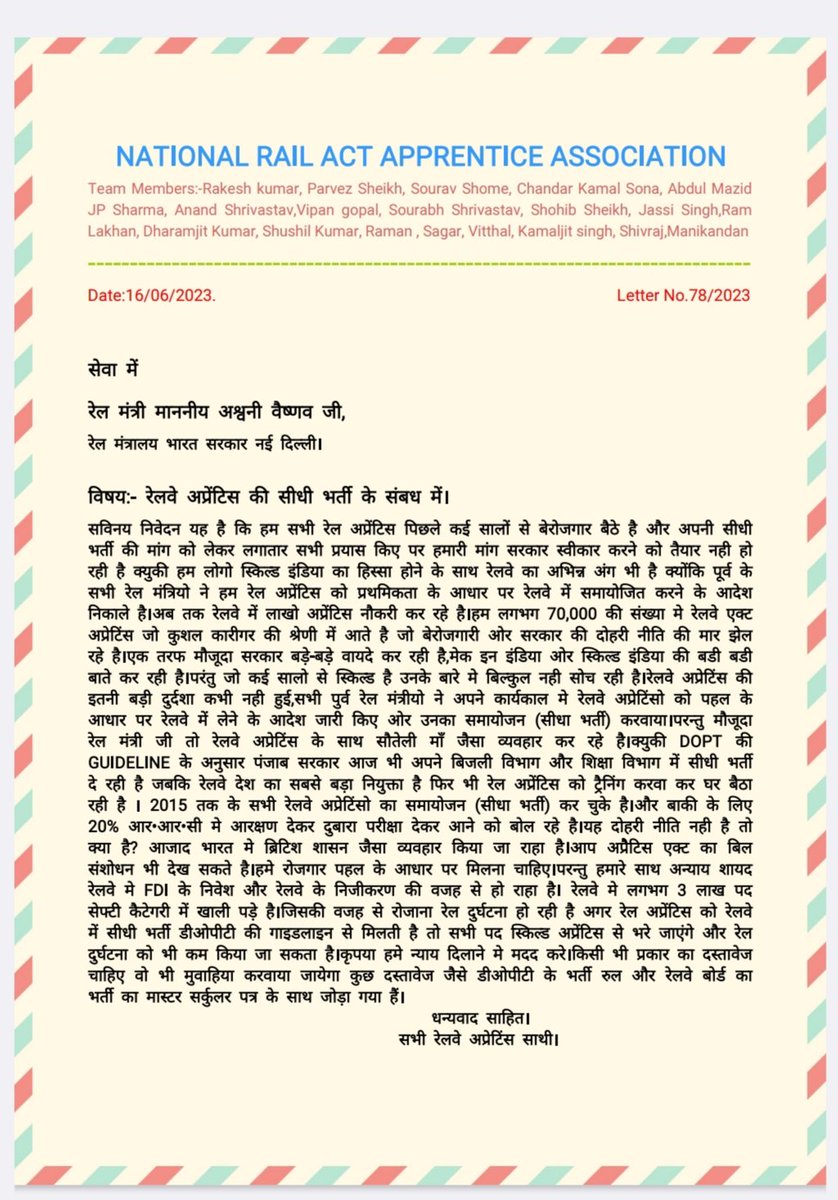 NATIONAL RAIL ACT APPRENTICE ASSOCIATION
Team Members:-Rakesh kumar, Parvez Sheikh, Sourav Shome, Chandar Kamal Sona, Abdul Mazid
JP Sharma, Anand Shrivastav,Vipan gopal, Sourabh Shrivastav, Shohib Sheikh, Jassi Singh,Ram
Lakhan, Dharamjit Kumar, Shushil Kumar, Raman , Sagar, Vitthal, Kamaljit singh, Shivraj,Manikandan
Date:16/06/2023. Letter No.78/2023
सेवा में
रेल मंत्री माननीय अश्वनी वैष्णव जी,
रेल मंत्रालय भारत सरकार नई दिल्ली।
विषय:- रेलवे अप्रेंटिस की सीधी भर्ती के संबध में।
सविनय निवेदन यह है कि हम सभी रेल अप्रेंटिस पिछले कई सालों से बेरोजगार बैठे है और अपनी सीधी
भर्ती की मांग को लेकर लगातार सभी प्रयास किए पर हमारी मांग सरकार स्वीकार करने को तैयार नही हो
रही है क्युकी हम लोगो स्किल्ड इंडिया का हिस्सा होने के साथ रेलवे का अभिन्न अंग भी है क्योंकि पूर्व के
सभी रेल मंत्रियो ने हम रेल अप्रेंटिस को प्रथमिकता के आधार पर रेलवे में समायोजित करने के आदेश
निकाले है।अब तक रेलवे में लाखो अप्रेंटिस नौकरी कर रहे है।हम लगभग 70,000 की संख्या मे रेलवे एक्ट
अप्रेटिंस जो कुशल कारीगर की श्रेणी में आते है जो बेरोजगारी ओर सरकार की दोहरी नीति की मार झेल
रहे है।एक तरफ मौजूदा सरकार बड़े-बड़े वायदे कर रही है,मेक इन इंडिया ओर स्किल्ड इंडिया की बडी बडी
बाते कर रही है।परंतु जो कई सालो से स्किल्ड है उनके बारे मे बिल्कुल नही सोच रही है।रेलवे अप्रेटिंस की
इतनी बड़ी दुर्दशा कभी नही हुई,सभी पुर्व रेल मंत्रीयो ने अपने कार्यकाल मे रेलवे अप्रेटिंसो को पहल के
आधार पर रेलवे में लेने के आदेश जारी किए ओर उनका समायोजन (सीधा भर्ती) करवाया।परन्तु मौजूदा
रेल मंत्री जी तो रेलवे अप्रेटिंस के साथ सौतेली माँ जैसा व्यवहार कर रहे है।क्युकी DOPT की
GUIDELINE के अनुसार पंजाब सरकार आज भी अपने बिजली विभाग और शिक्षा विभाग में सीधी भर्ती
दे रही है जबकि रेलवे देश का सबसे बड़ा नियुक्ता है फिर भी रेल अप्रेटिस को ट्रैनिंग करवा कर घर बैठा
रही है । 2015 तक के सभी रेलवे अप्रेटिंसो का समायोजन (सीधा भर्ती) कर चुके है।और बाकी के लिए
20% आर•आर•सी मे आरक्षण देकर दुबारा परीक्षा देकर आने को बोल रहे है।यह दोहरी नीति नही है तो
क्या है? आजाद भारत मे ब्रिटिश शासन जैसा व्यवहार किया जा राहा है।आप अप्रैटिस एक्ट का बिल
संशोधन भी देख सकते है।हमे रोजगार पहल के आधार पर मिलना चाहिए।परन्तु हमारे साथ अन्याय शायद
रेलवे मे FDI के निवेश और रेलवे के निजीकरण की वजह से हो राहा है। रेलवे मे लगभग 3 लाख पद
सेफ्टी कैटेगरी में खाली पड़े है।जिसकी वजह से रोजाना रेल दुर्घटना हो रही है अगर रेल अप्रेटिस को रेलवे
में सीधी भर्ती डीओपीटी की गाइडलाइन से मिलती है तो सभी पद स्किल्ड अप्रेटिस से भरे जाएंगे और रेल
दुर्घटना को भी कम किया जा सकता है।कृपया हमे न्याय दिलाने मे मदद करे।किसी भी प्रकार का दस्तावेज
चाहिए वो भी मुवाहिया करवाया जायेगा कुछ दस्तावेज जैसे डीओपीटी के भर्ती रुल और रेलवे बोर्ड का
भर्ती का मास्टर सर्कुलर पत्र के साथ जोड़ा गया हैं।
धन्यवाद साहित।
सभी रेलवे अप्रेटिंस साथी।